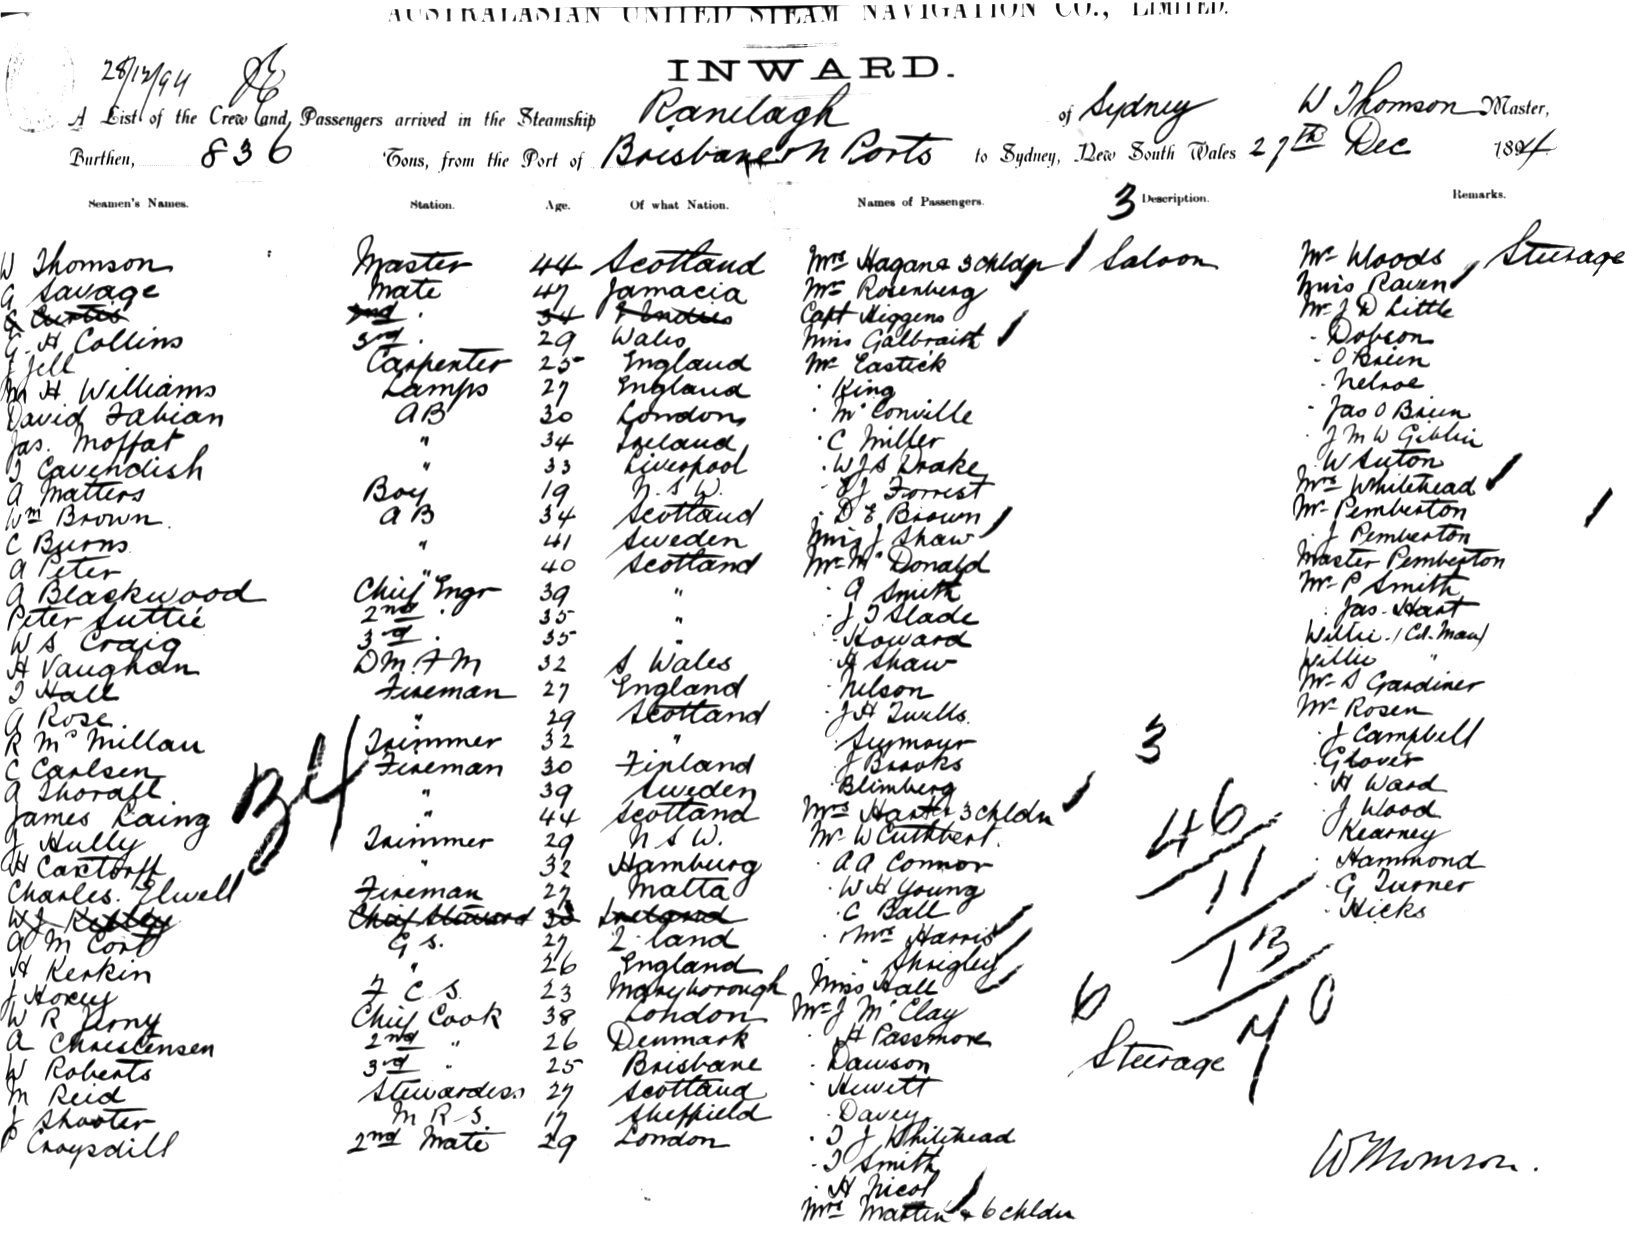 AUSTRALASIAN UNITED STEAM NAVIGATION CO., LIMITED.
28/12/94
INWARD.
A List of the Crew and Passengers arrived in the Steamship Ranelagh of Sydney W Thomson Master,
Burthen, 836 Tons, from the Port of Brisbane & N Ports to Sydney, New South Wales 27th Dec 1894
Seamen's Names. Station. Age. Of what Nation. Names of Passengers. 3 Description. Remarks.
W Thomson Master 44 Scotland Mrs Hagan & 3 chldn Saloon Mr Woods Steerage
G Savage Mate 47 Jamacia Mr Rosenberg Miss Raven
Curtis 2nd 34 Indies Capt Higgens Mr J D Little
G. H Collins 3rd 29 Wales Miss Galbraith Dobson
J Jell Carpenter 25 England Mr Eastick O Brien
M H Williams Lamps 27 England King Nelroe
David Fabian AB 30 London Mc Conville Jas O Brien
Jas. Moffat " 34 Ireland C Miller J M W Giblin
T Cavendish " 33 Liverpool W J S Drake W Suton
A Matters Boy 19 N. S W. J Forrest Mrs Whitehead
Wm Brown. A B 34 Scotland D E Brown Mr Pemberton
C Burns " 41 Sweden Miss J Shaw J Pemberton
A Peter " 40 Scotland Mr Mc Donald Master Pemberton
A Blackwood Chief Engr 39 " A Smith Mr P Smith
Peter Suttie 2nd " 35 " J T Slade Jas. Hart
W S Craig 3rd " 35 " Howard Willie (Cd. Man)
H Vaughan D M. F M 32 S Wales A Shaw Willie "
T Hall Fireman 27 England Nelson Mr S Gardiner
A Rose. " 29 Scotland J H Twells Mr Rosen
R Mc Millan Trimmer 32 " Seymour 3 J Campbell
C Carlsen Fireman 30 Finland J Brooks Glover
A Thoralt " 39 Sweden Blimberg H Ward
James Laing " 44 Scotland Mrs Harte & 3 chldn 46 J Wood
J Hully Trimmer 29 N S W. Mr W Cuthbert. Kearney
H Castorff " 32 Hamburg A A Connor Hammond
Charles Elwell Fireman 27 Malta W H Young 11 G Turner
W J Chief Steward 38 Ireland C Ball Hicks
A M Cort G S. 27 Z land Mrs Harris 13
H Kerkin " 26 England " Shrigley
J Hoxey F C S. 23 Maryborough Miss Hall 6 70
W R Jerny Chief Cook 38 London Mr J Mc Clay
A Christensen 2nd " 26 Denmark H Passmore
W Roberts 3rd " 25 Brisbane Dawson Steerage
M Reid Stewardess 27 Scotland Hewett
J Shooter M R S. 17 Sheffield Davey
P Croysdill 2nd Mate 29 London T J Whitehead
T Smith W Thomson.
H Nicol
Mrs Martin & 6 chldn